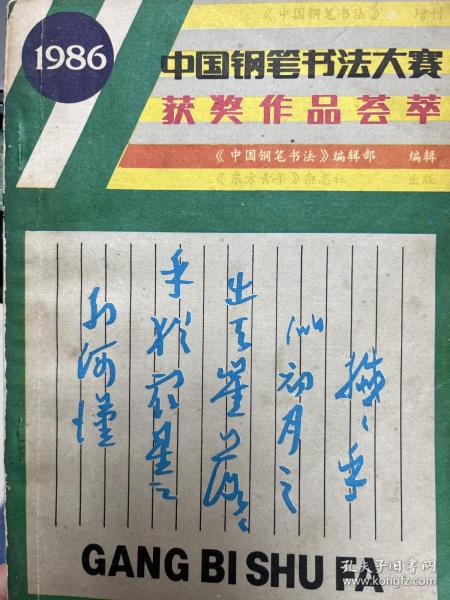 《中国钢笔书法》 增刊
1986
中国钢笔书法大赛
获奖作品荟萃
《中国钢笔书法》编辑部 编辑
《东方青年》杂志社 出版
纤纤乎
似初月之
出天崖落落
乎犹众星之
列河汉
GANG BI SHU FA
孔夫子旧书网